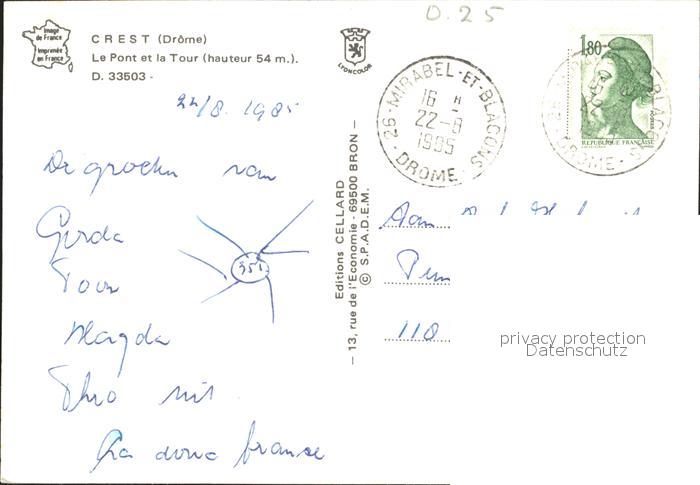 0.25
Image
de France
Imprimée
en France
CREST (Drôme)
Le Pont et la Tour (hauteur 54 m.).
D. 33503 -
LYONCOLOR
26 - MIRABEL-ET-BLACONS
16 H
22-8
1985
DROME
1,80
REPUBLIQUE FRANÇAISE
22/8. 1985
De groeten van
Gerda
Toon
Magda
Theo uit
351
Editions CELLARD
- 13, rue de l'Economie - 69500 BRON -
© S.P.A.D.E.M.
Aan
110
privacy protection
Datenschutz